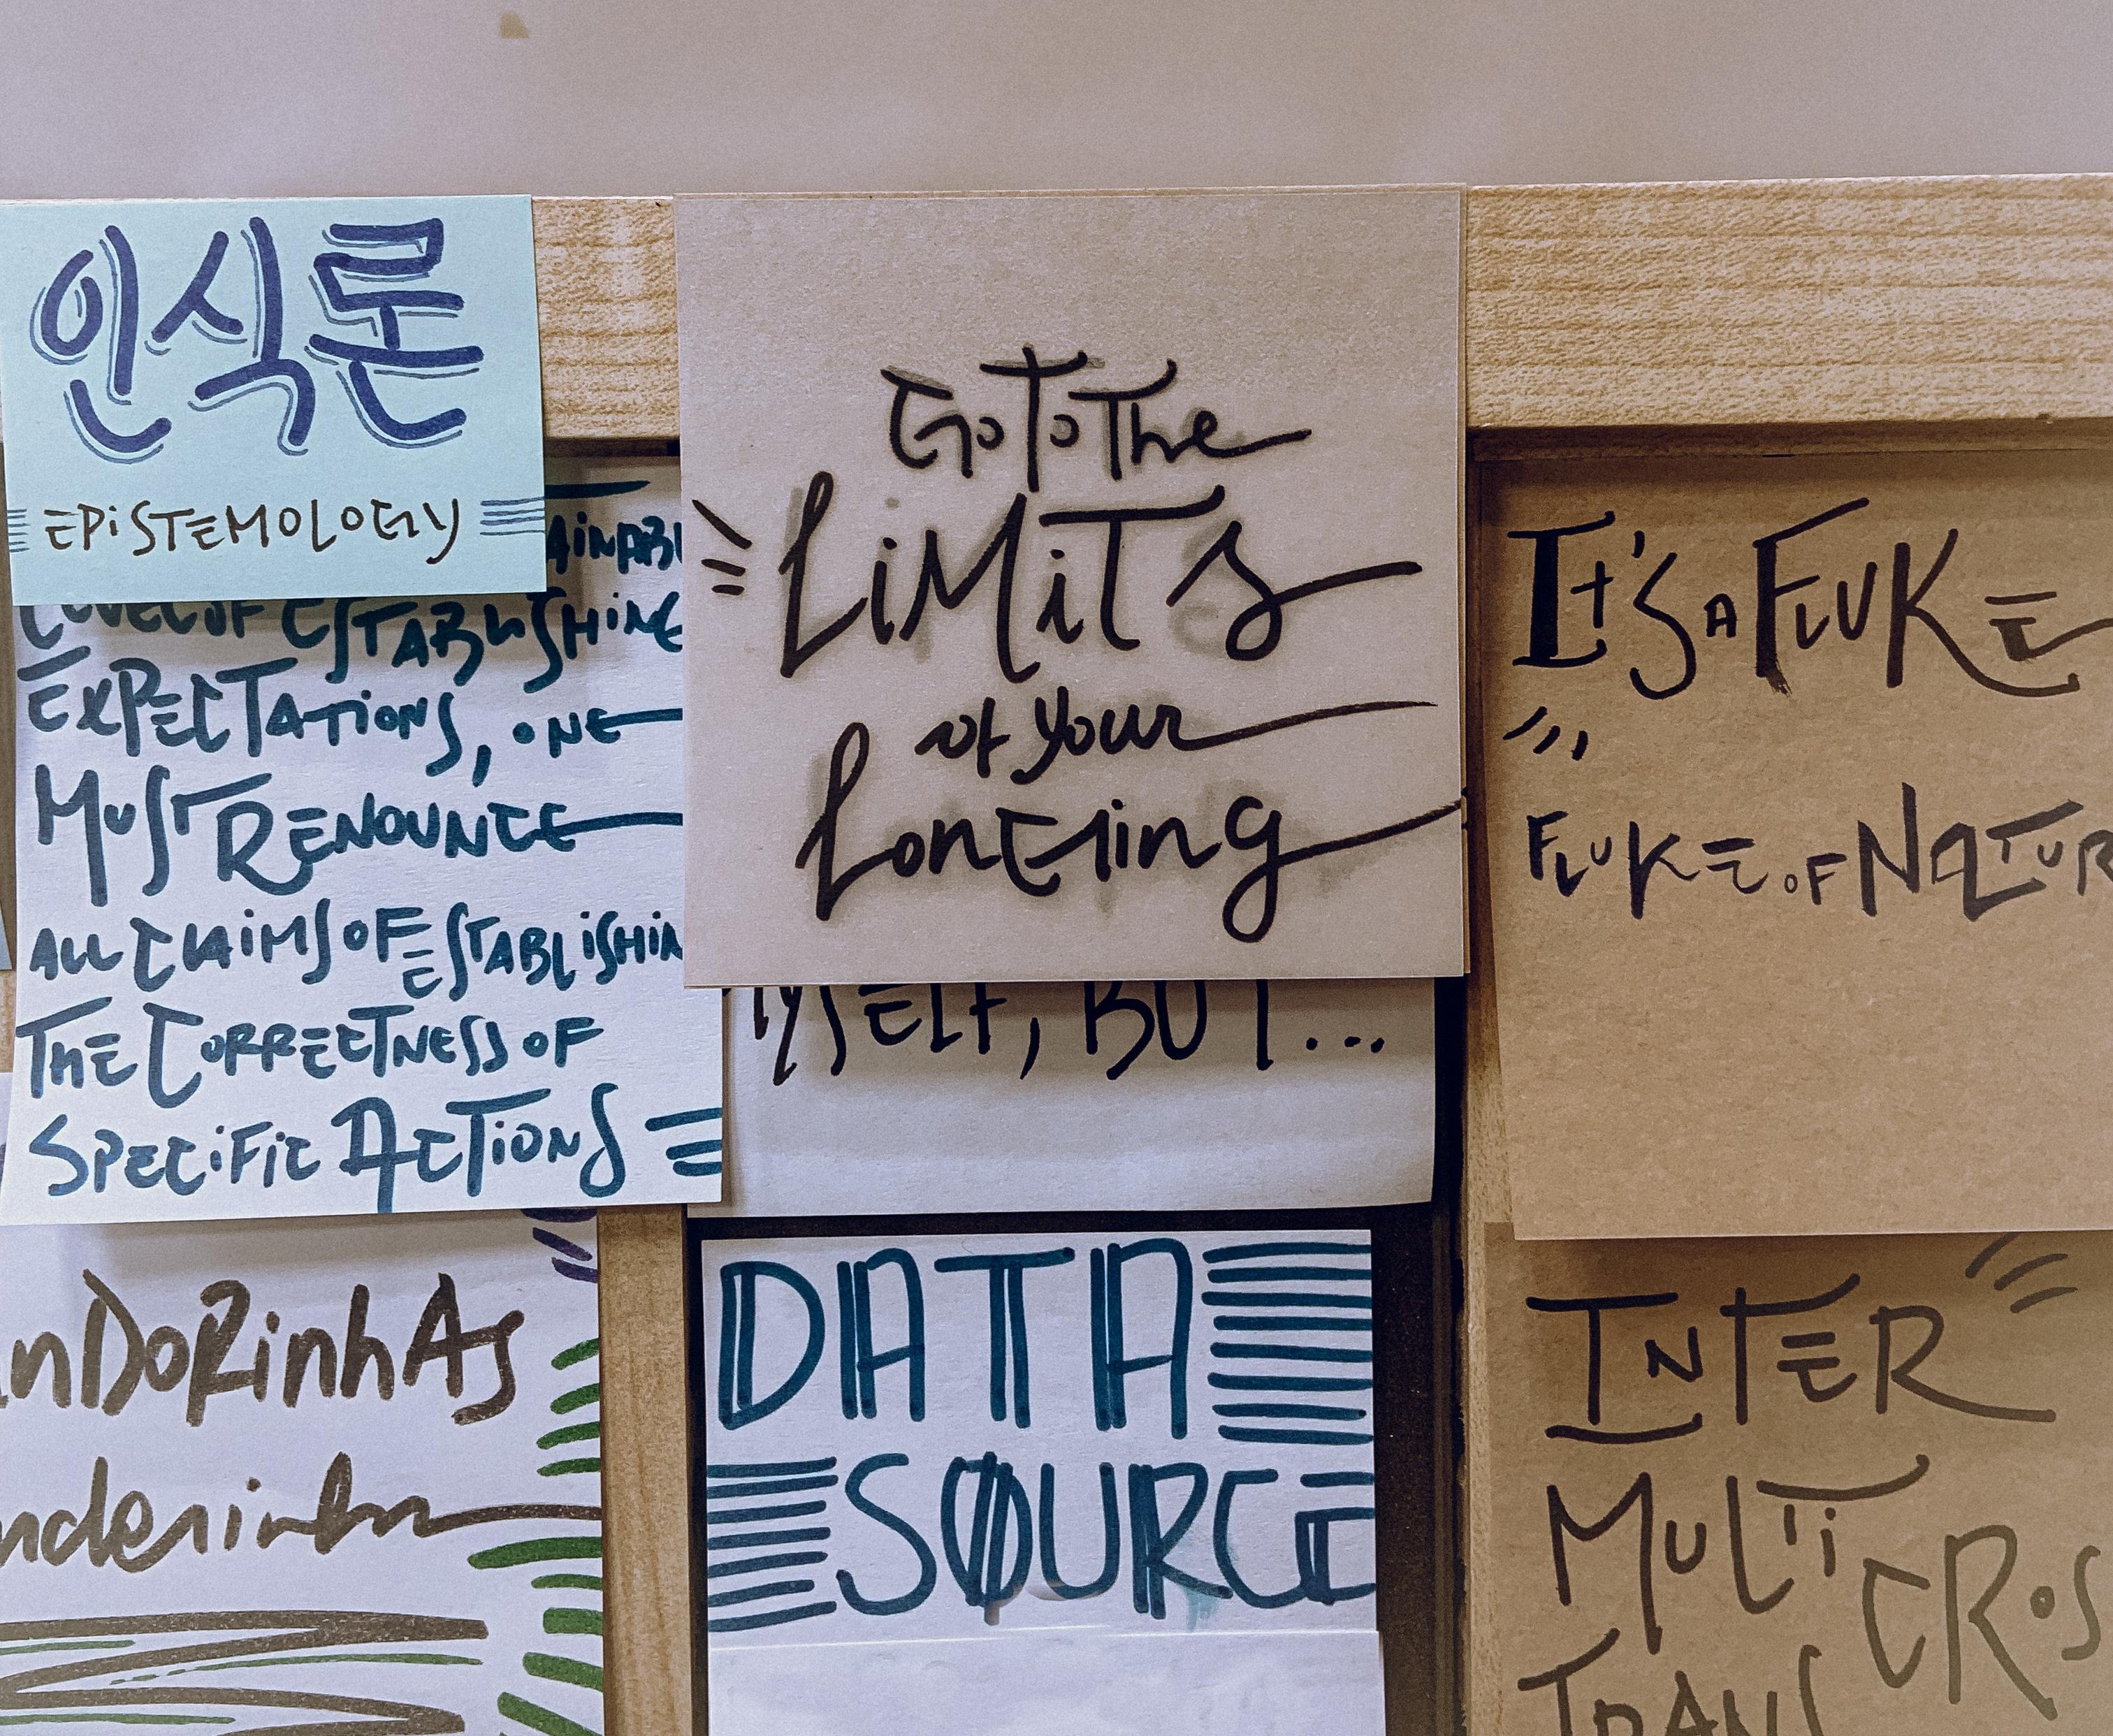 인식론
EPISTEMOLOGY
LEVEL OF ESTABLISHING
EXPECTATIONS, ONE
MUST RENOUNCE
ALL CLAIMS OF ESTABLISHIN
THE CORRECTNESS OF
SPECIFIC ACTIONS
Go To The
LiMiTs
of your
Longing
MYSELF, BUT...
IT'S A FLUKE
FLUKE OF NATUR
nDoRinhAs
DATA
SOURCE
INTER
MULTI
CROS
TRANS